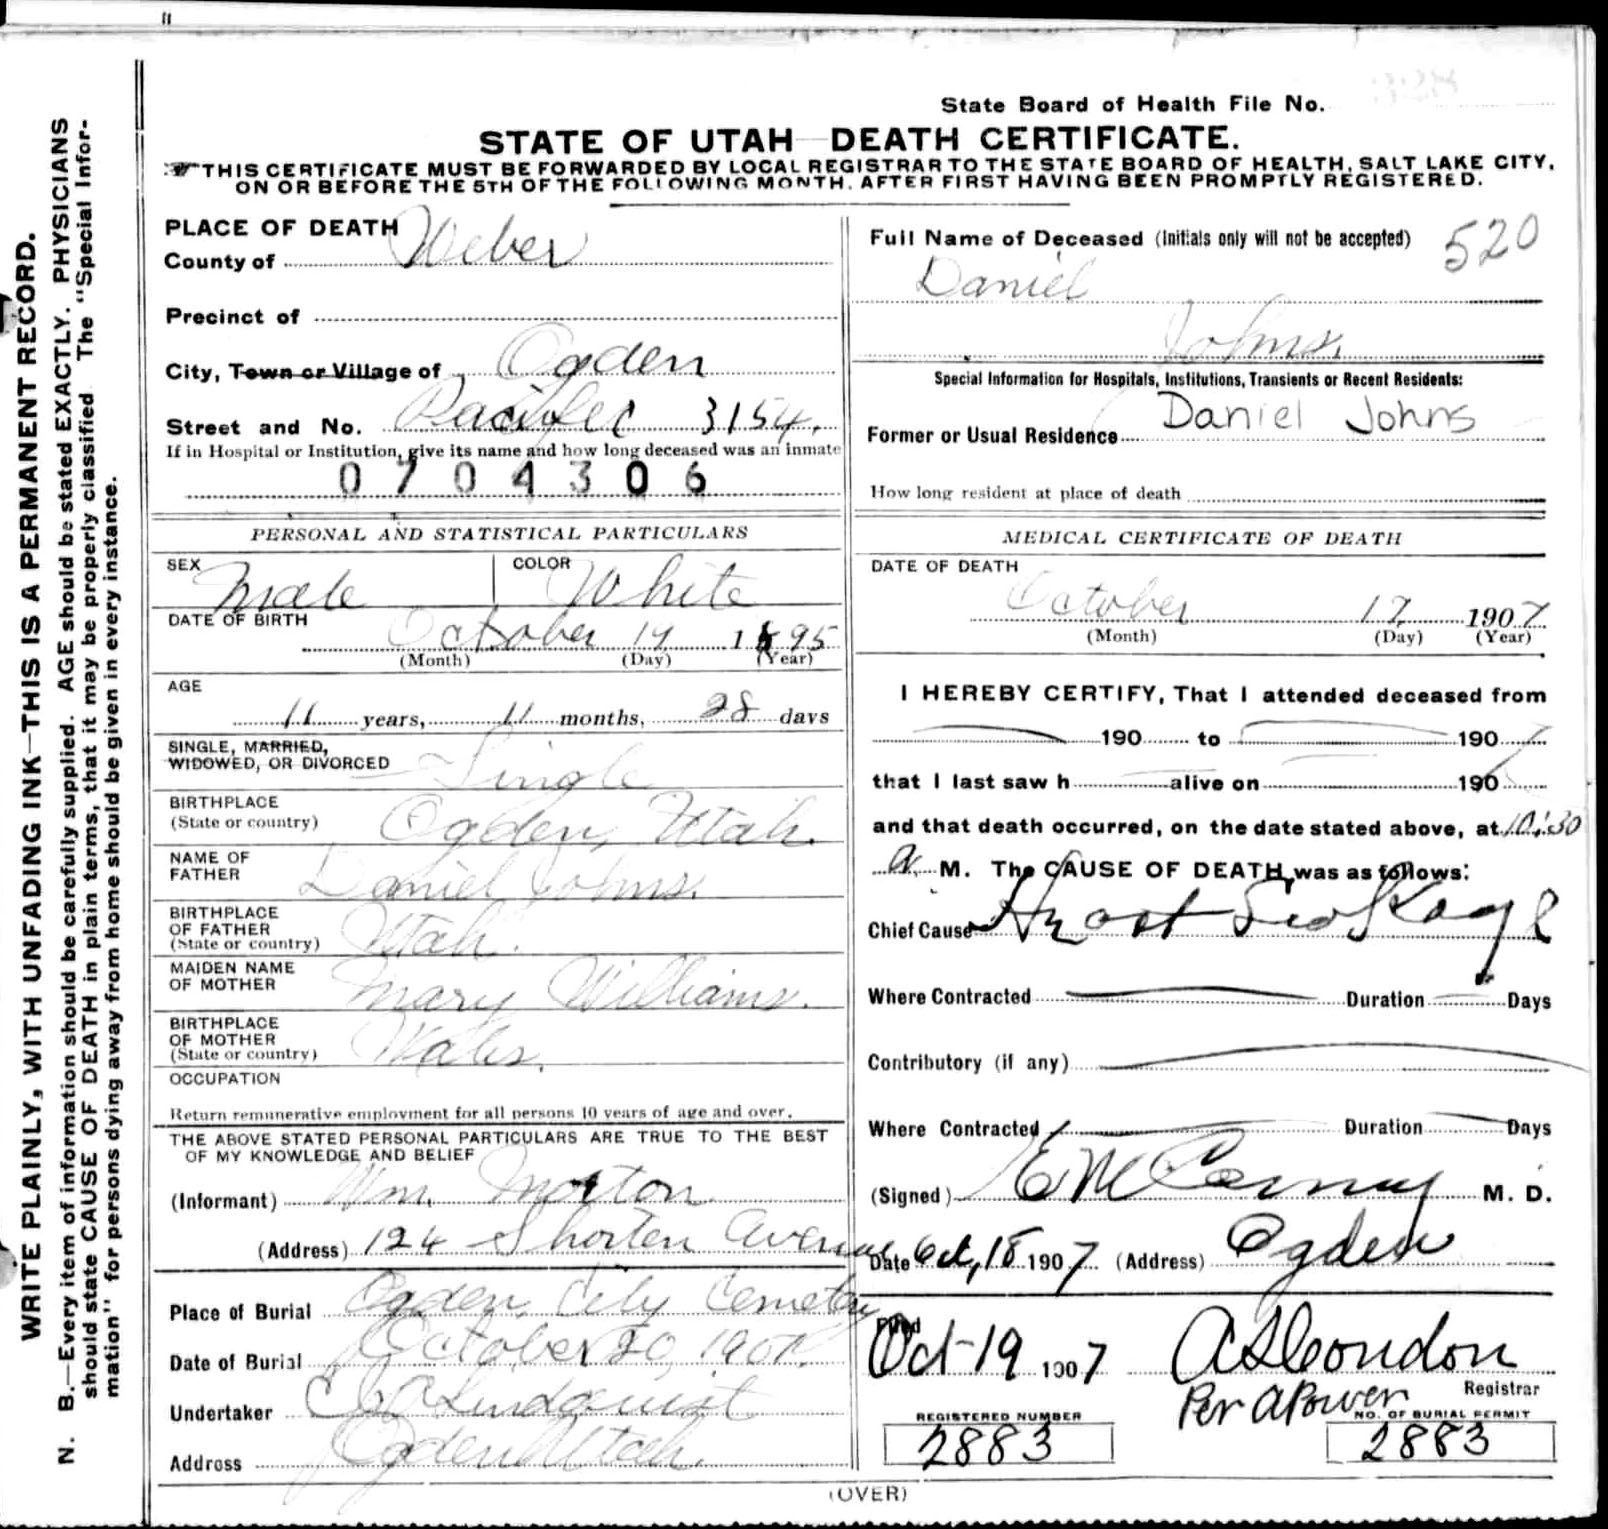 WRITE PLAINLY, WITH UNFADING INK—THIS IS A PERMANENT RECORD.
N. B.—Every item of information should be carefully supplied. AGE should be stated EXACTLY. PHYSICIANS
should state CAUSE OF DEATH in plain terms, that it may be properly classified. The "Special Infor-
mation" for persons dying away from home should be given in every instance.
State Board of Health File No.
STATE OF UTAH—DEATH CERTIFICATE.
THIS CERTIFICATE MUST BE FORWARDED BY LOCAL REGISTRAR TO THE STATE BOARD OF HEALTH, SALT LAKE CITY,
ON OR BEFORE THE 5TH OF THE FOLLOWING MONTH, AFTER FIRST HAVING BEEN PROMPTLY REGISTERED.
PLACE OF DEATH
County of Weber
Precinct of
City, Town or Village of Ogden
Street and No. 3154.
If in Hospital or Institution, give its name and how long deceased was an inmate
0704306
PERSONAL AND STATISTICAL PARTICULARS
SEX Male COLOR White
DATE OF BIRTH October 19 1895
(Month) (Day) (Year)
AGE
11 years, 11 months, 28 days
SINGLE, MARRIED,
WIDOWED, OR DIVORCED Single
BIRTHPLACE
(State or country) Ogden, Utah.
NAME OF
FATHER Daniel Johns.
BIRTHPLACE
OF FATHER
(State or country) Utah.
MAIDEN NAME
OF MOTHER Mary Williams.
BIRTHPLACE
OF MOTHER
(State or country) Wales.
OCCUPATION
Return remunerative employment for all persons 10 years of age and over.
THE ABOVE STATED PERSONAL PARTICULARS ARE TRUE TO THE BEST
OF MY KNOWLEDGE AND BELIEF
(Informant) Wm. Morton
(Address) 124 Shorten Avenue
Place of Burial Ogden City Cemetery
Date of Burial October 20, 1907.
Undertaker Lindquist
Address Ogden Utah.
Full Name of Deceased (Initials only will not be accepted) 520
Daniel
Johns.
Special Information for Hospitals, Institutions, Transients or Recent Residents:
Former or Usual Residence Daniel Johns
How long resident at place of death
MEDICAL CERTIFICATE OF DEATH
DATE OF DEATH
October 17 1907
(Month) (Day) (Year)
I HEREBY CERTIFY, That I attended deceased from
190 to 190
that I last saw h alive on 190
and that death occurred, on the date stated above, at 10:30
a. M. The CAUSE OF DEATH was as follows:
Chief Cause
Where Contracted Duration Days
Contributory (if any)
Where Contracted Duration Days
(Signed) M. D.
Date Oct, 18 1907 (Address) Ogden
Filed
Oct 19 1907 A S Condon
Per A Power Registrar
REGISTERED NUMBER NO. OF BURIAL PERMIT
2883 2883
(OVER)